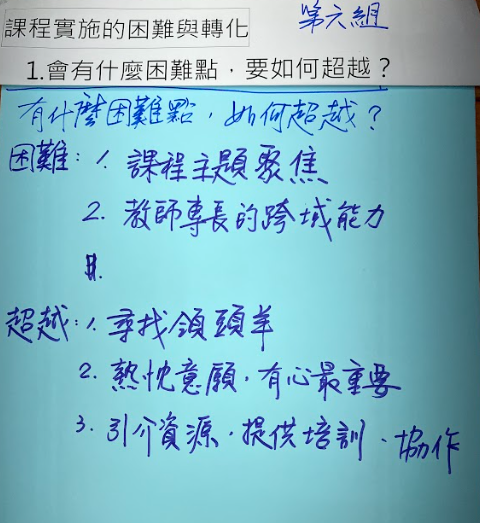 課程實施的困難與轉化 第六組
1.會有什麼困難點，要如何超越？
有什麼困難點，如何超越？
困難：1. 課程主題聚焦
2. 教師專長的跨域能力
超越：1. 尋找領頭羊
2. 熱忱意願，有心最重要
3. 引介資源、提供培訓、協作